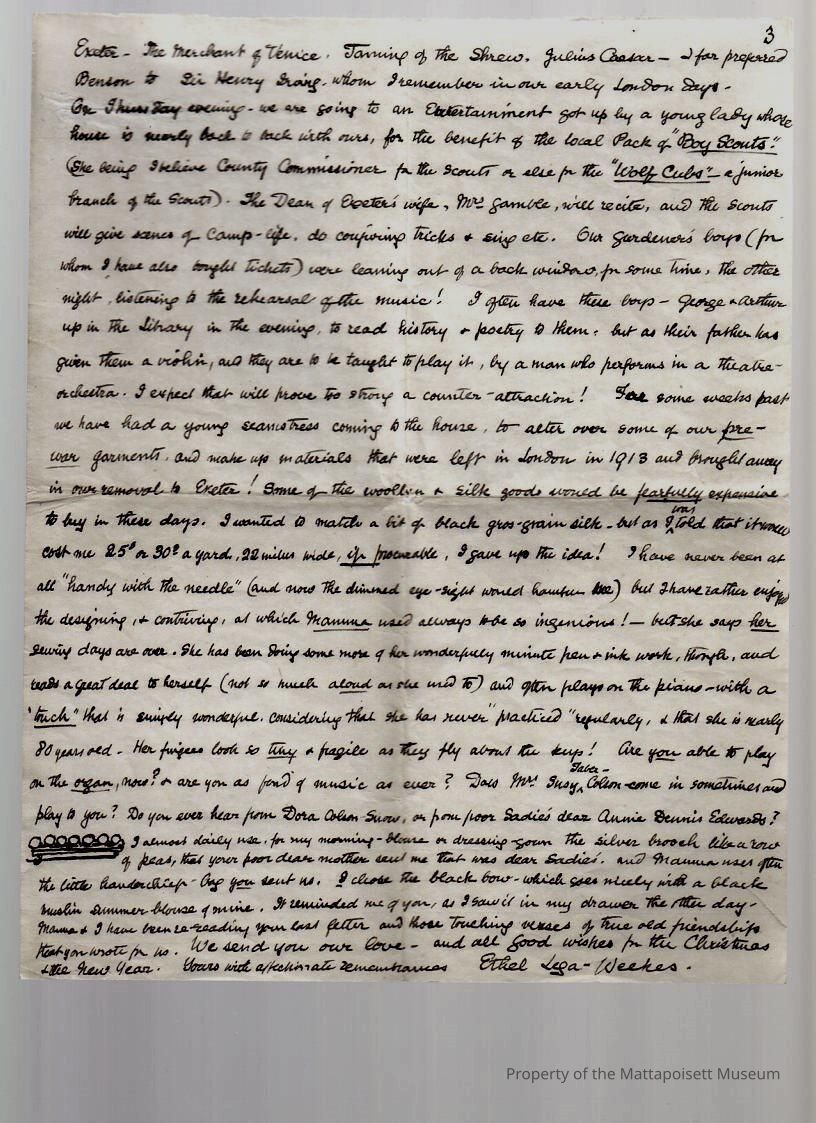 3
Exeter - The Merchant of Venice. Taming of the Shrew. Julius Caesar - I far preferred
Benson to Sir Henry Irving, whom I remember in our early London Days -
On Thursday evening - we are going to an Entertainment got up by a young lady whose
house is nearly back to back with ours, for the benefit of the local Pack of "Boy Scouts".
(She being I believe County Commissioner for the Scouts or else for the "Wolf Cubs" - a junior
branch of the Scouts). The Dean of Exeter's wife, Mrs Gamble, will recite, and the Scouts
will give scenes of Camp-life, do conjuring tricks & sing etc. Our gardener's boys (for
whom I have also bought tickets) were leaning out of a back window, for some time, the other
night, listening to the rehearsal of the music! I often have these boys - George & Arthur
up in the Library in the evening, to read history & poetry to them: but as their father has
given them a violin, and they are to be taught to play it, by a man who performs in a theatre-
orchestra. I expect that will prove too strong a counter-attraction! For some weeks past
we have had a young seamstress coming to the house, to alter over some of our pre-
war garments, and make up materials that were left in London in 1913 and brought away
in our removal to Exeter! Some of the woollen & silk goods would be fearfully expensive
to buy in these days. I wanted to match a bit of black gros-grain silk - but as I was told that it would
cost me 25s or 30s a yard, 22 inches wide, if procurable, I gave up the idea! I have never been at
all "handy with the needle" (and now the dimmed eye-sight would hamper me) but I have rather enjoyed
the designing, & contriving, at which Mamma used always to be so ingenious! - but she says her
sewing days are over. She has been doing some more of her wonderfully minute pen & ink work, though, and
reads a great deal to herself (not so much aloud as she used to) and often plays on the piano - with a
"touch" that is simply wonderful, considering that she has never "practiced" regularly, & that she is nearly
80 years old - Her fingers look so tiny & fragile as they fly about the keys! Are you able to play
on the organ, now? & are you as fond of music as ever? Does Mrs Susy Taber-Colson come in sometimes and
play to you? Do you ever hear from Dora Colson Snow, or from poor Sadie's dear Annie Dennis Edwards?
I almost daily use, for my morning-blouse or dressing-gown the silver brooch like a row
of peas, that your poor dear mother sent me that was dear Sadie's. and Mamma uses often
the little handkerchief-bag you sent us. I chose the black bow - which goes nicely with a black
muslin summer-blouse of mine. It reminded me of you, as I saw it in my drawer the other day -
Mamma & I have been re-reading your last letter and those touching verses of true old friendship
that you wrote for us. We send you our love - and all good wishes for the Christmas
& the New Year. Yours with affectionate remembrances Ethel Lega-Weekes.
Property of the Mattapoisett Museum